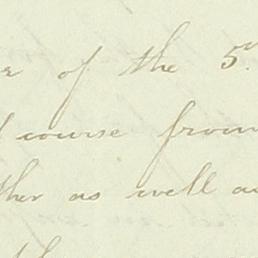 of the 5th
course from
ther as well as